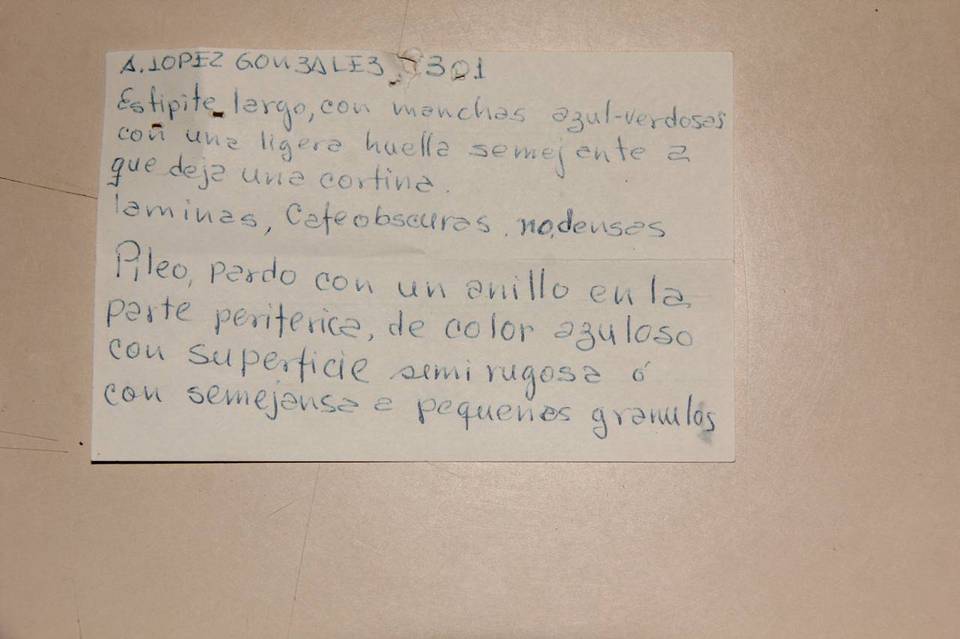 A. LOPEZ GONZALES, 301
Estipite largo, con manchas azul-verdosas
con una ligera huella semejente a
que deja una cortina.
laminas, Cafeobscuras, no densas
Pileo, pardo con un anillo en la
parte periferica, de color azuloso
con superficie semi rugosa ó
con semejansa a pequeños granulos